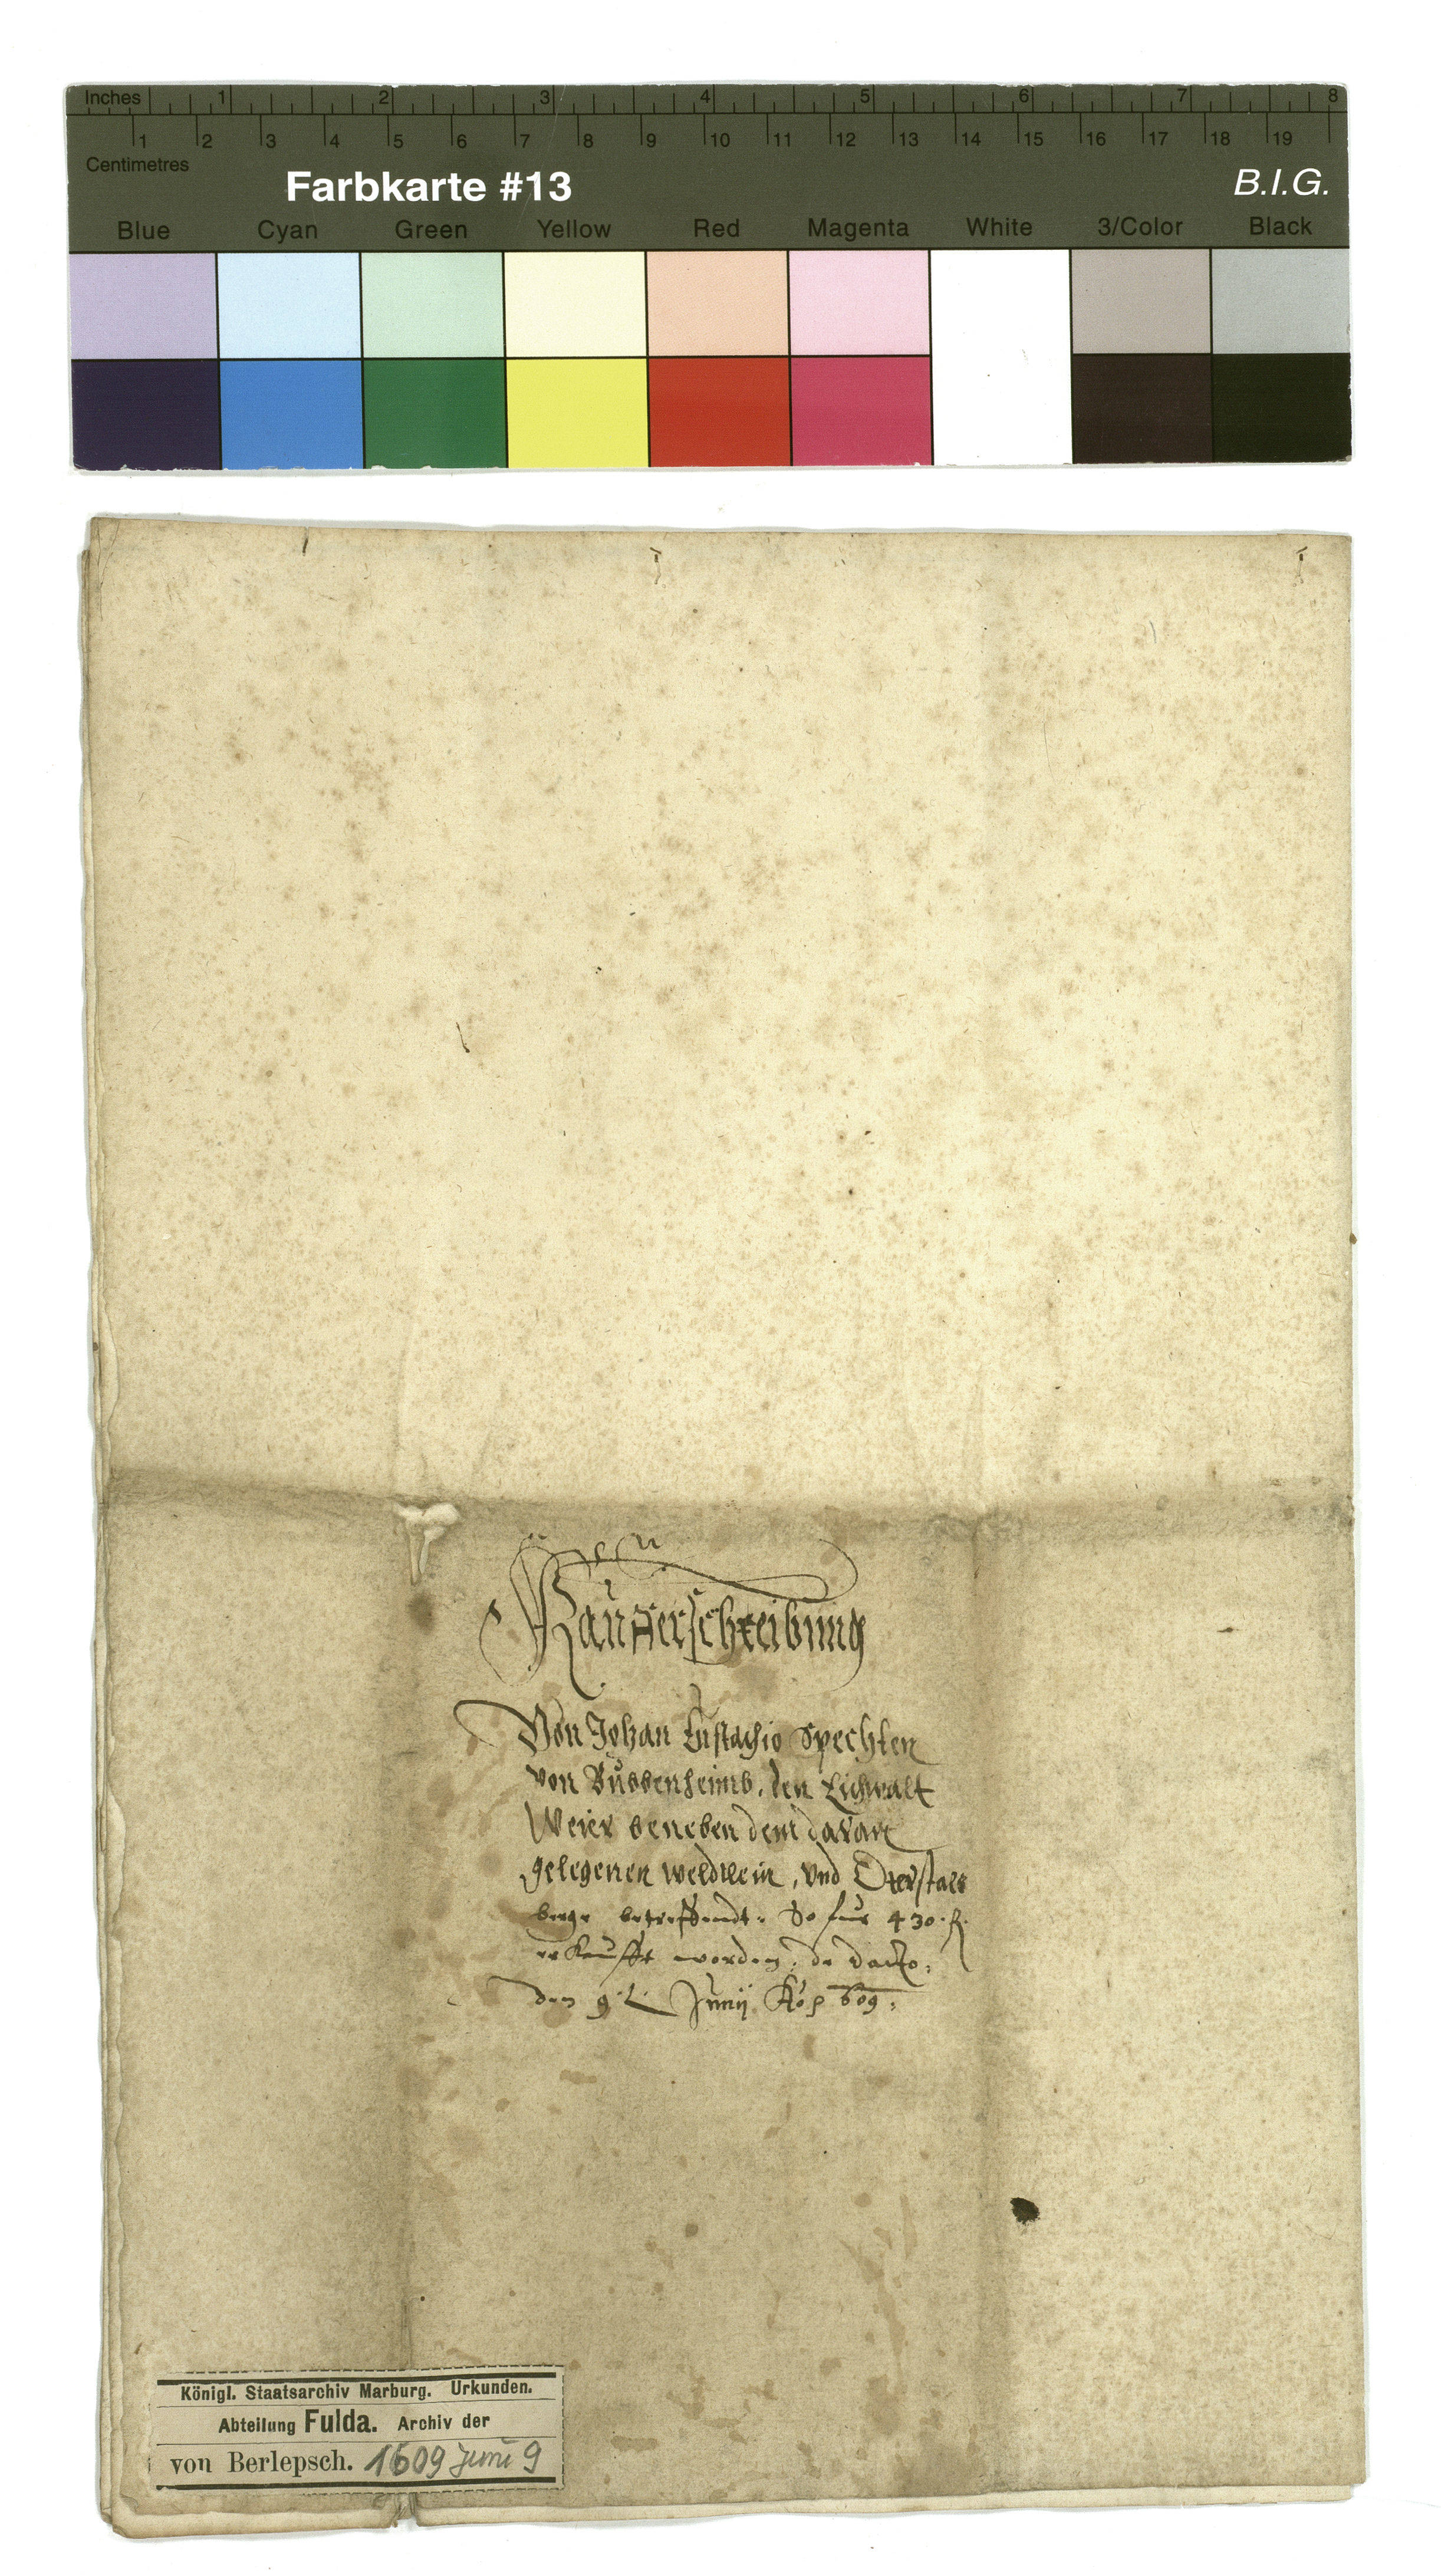 Inches 1 2 3 4 5 6 7 8
1 2 3 4 5 6 7 8 9 10 11 12 13 14 15 16 17 18 19
Centimetres
Farbkarte #13 B.I.G.
Blue Cyan Green Yellow Red Magenta White 3/Color Black
Kauffverschreibung
Von Johan Eustachio Spechten
von Bubbenheimb, den Eichwalt
Weier beneben dem daran
gelegenen weldtlein, vnd Oterstals
berge betreffendt. So fur 430. fl.
erkaufft worden, de dato,
den 9t. Junij 609.
Königl. Staatsarchiv Marburg. Urkunden.
Abteilung Fulda. Archiv der
von Berlepsch. 1609 Juni 9